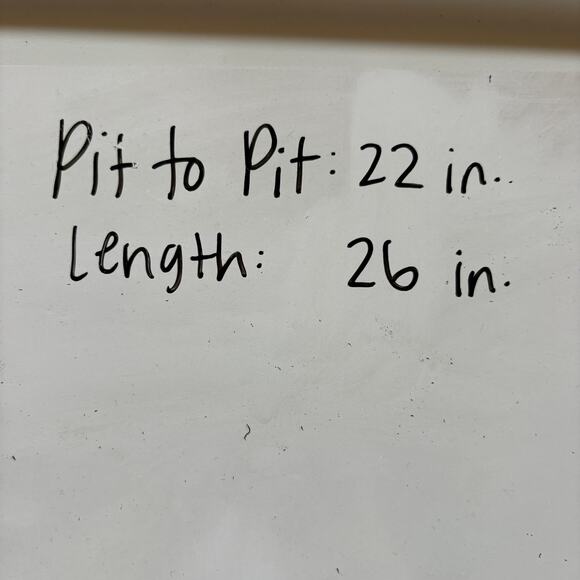 Pit to Pit: 22 in.
Length: 26 in.